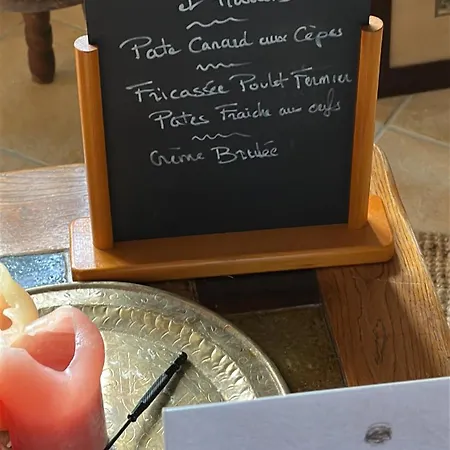 Pate Canard aux Cèpes
Fricassée Poulet Fermier
Pates Fraiche aux œufs
Crème Brulée